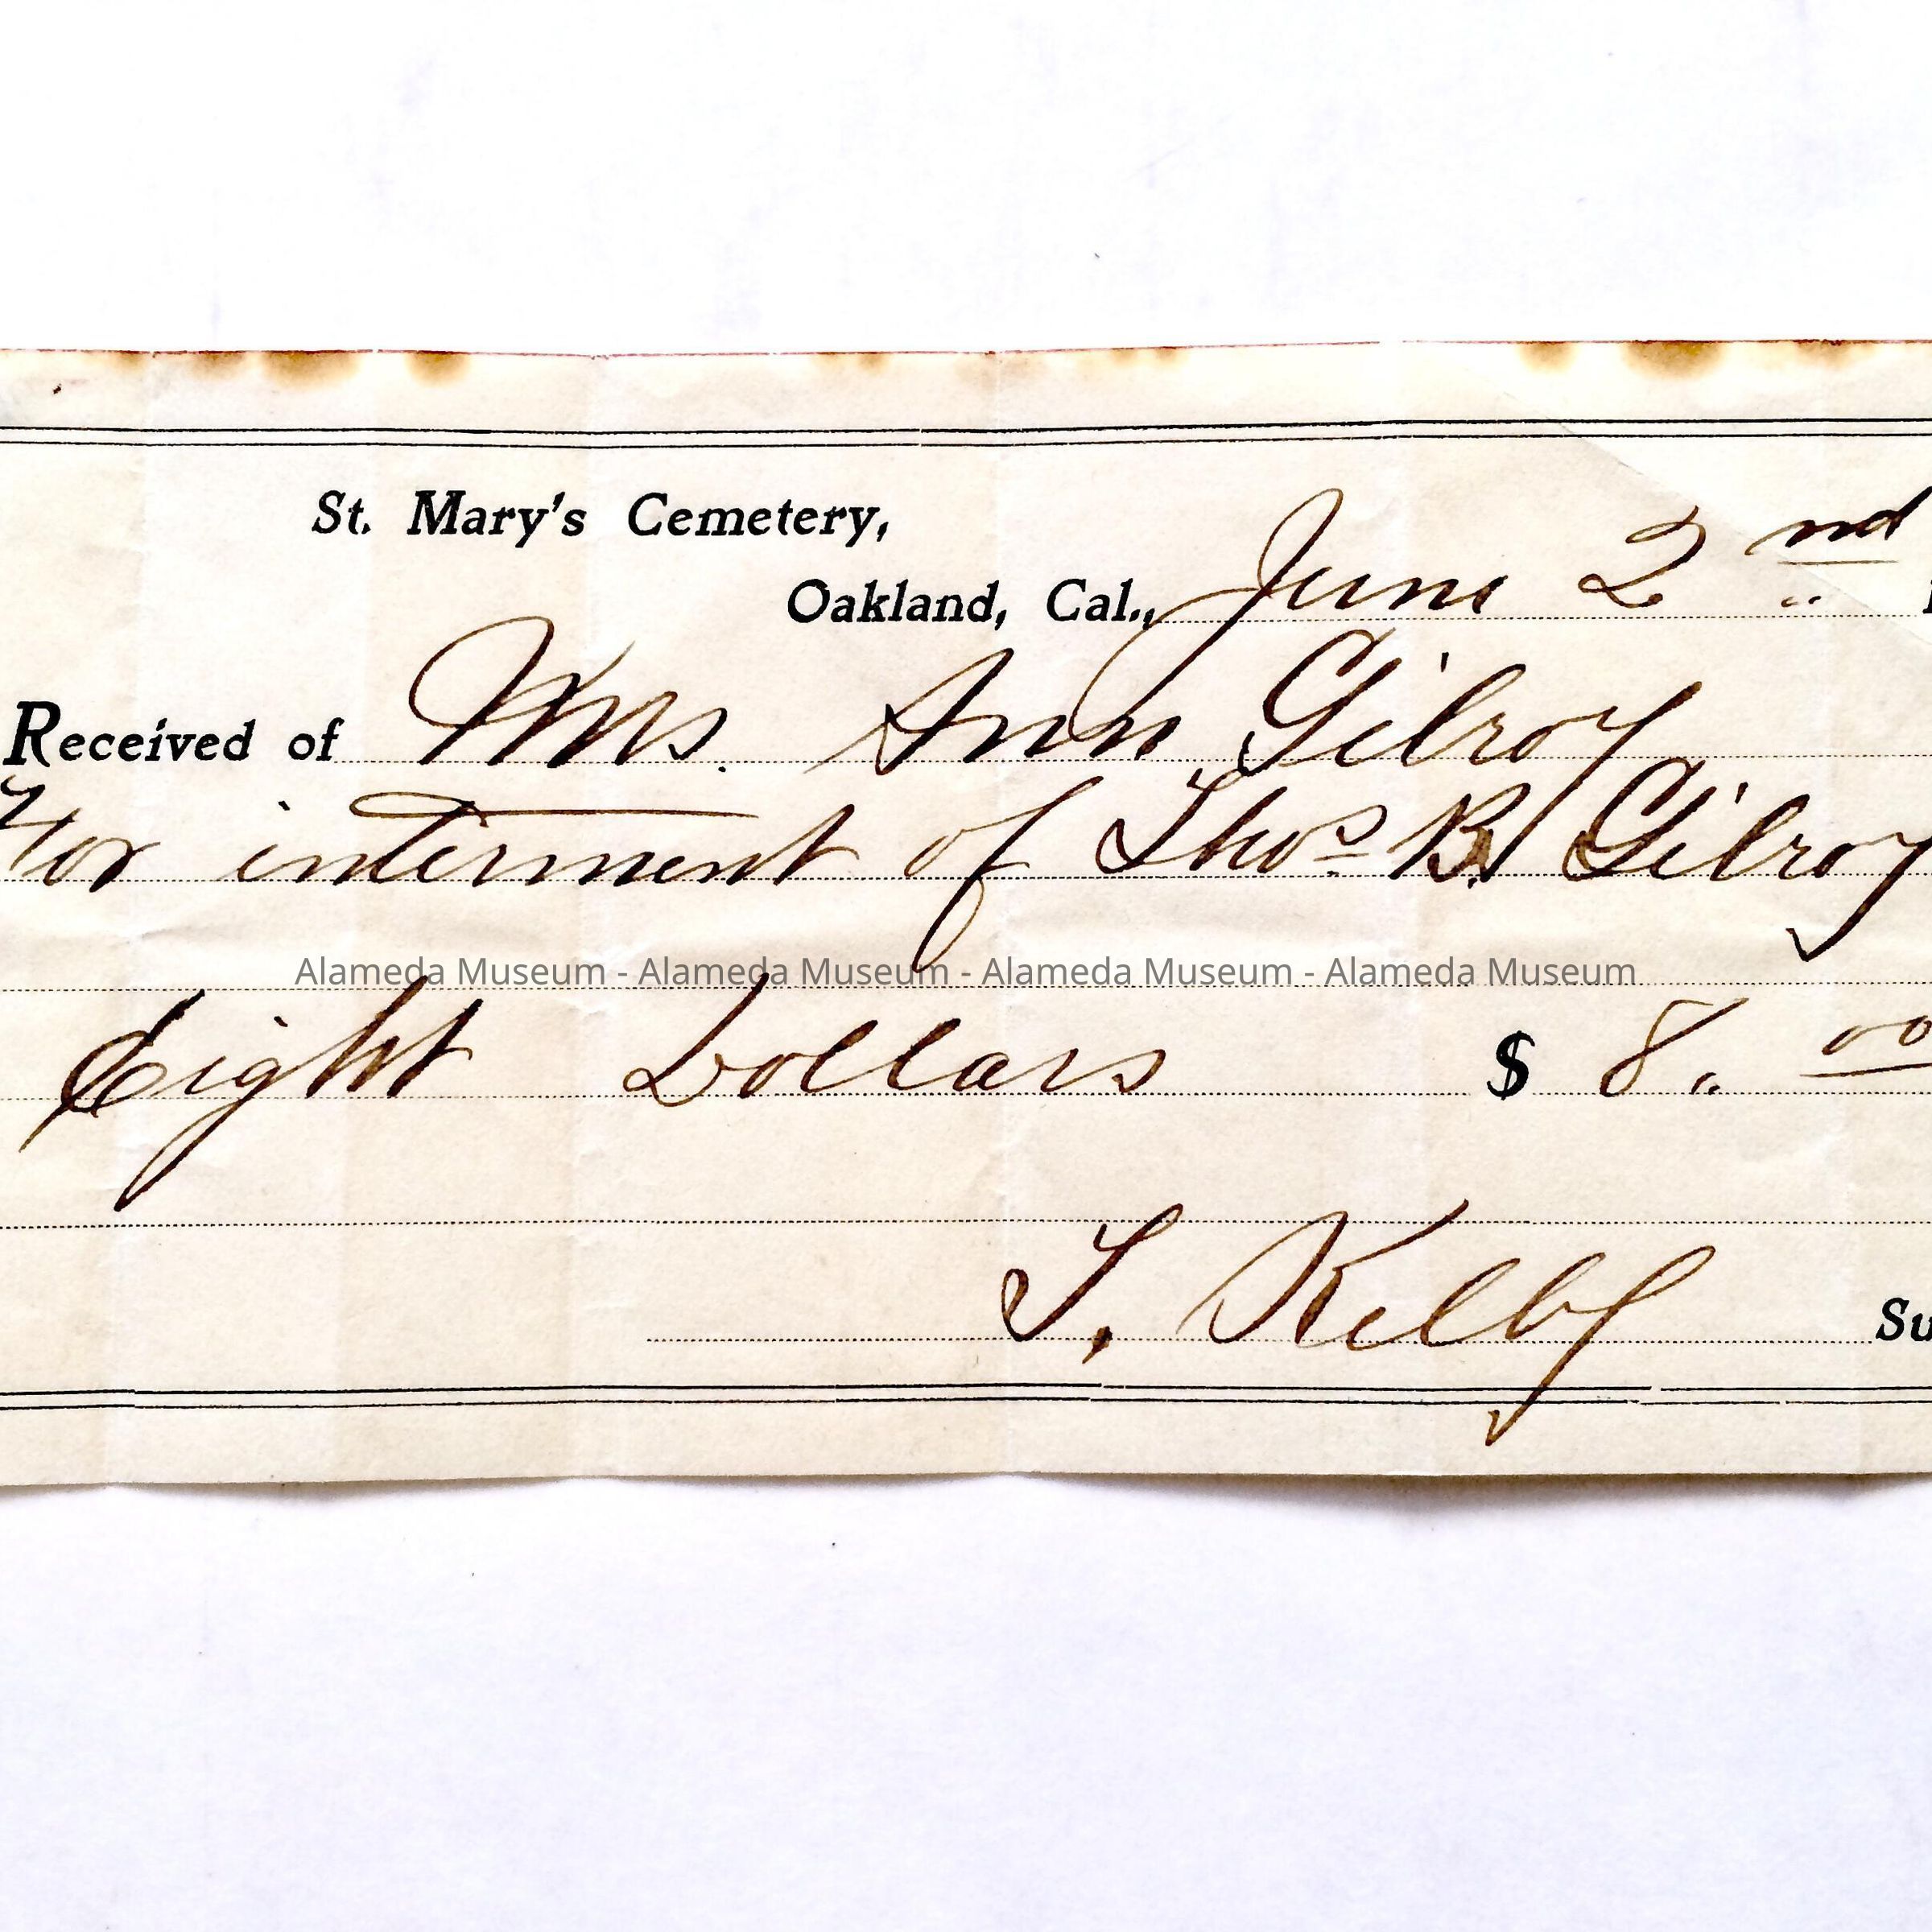 St. Mary's Cemetery,
Oakland, Cal., June 2nd
Received of Mrs. Ann Gilroy
For interment of Thos B. Gilroy
Alameda Museum - Alameda Museum - Alameda Museum - Alameda Museum
Eight Dollars $ 8. 00
Kelly